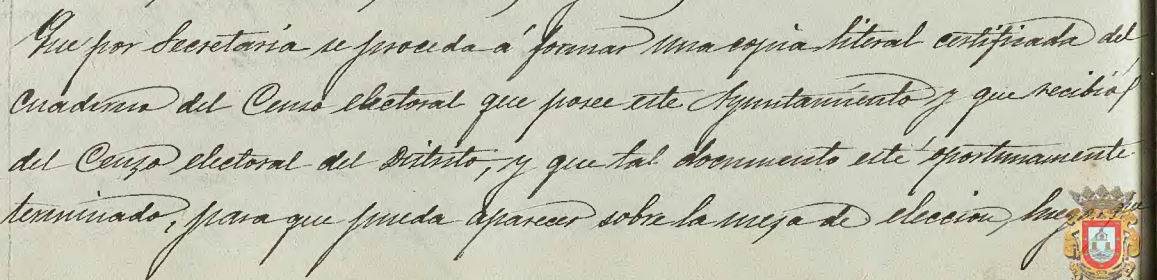 Que por Secretaria se proceda á formar una copia literal certificada del
cuaderno del Censo electoral que posee este Ayuntamiento y que recibió
del Censo electoral del Distrito, y que tal documento esté oportunamente
terminado, para que pueda aparecer sobre la mesa de eleccion,